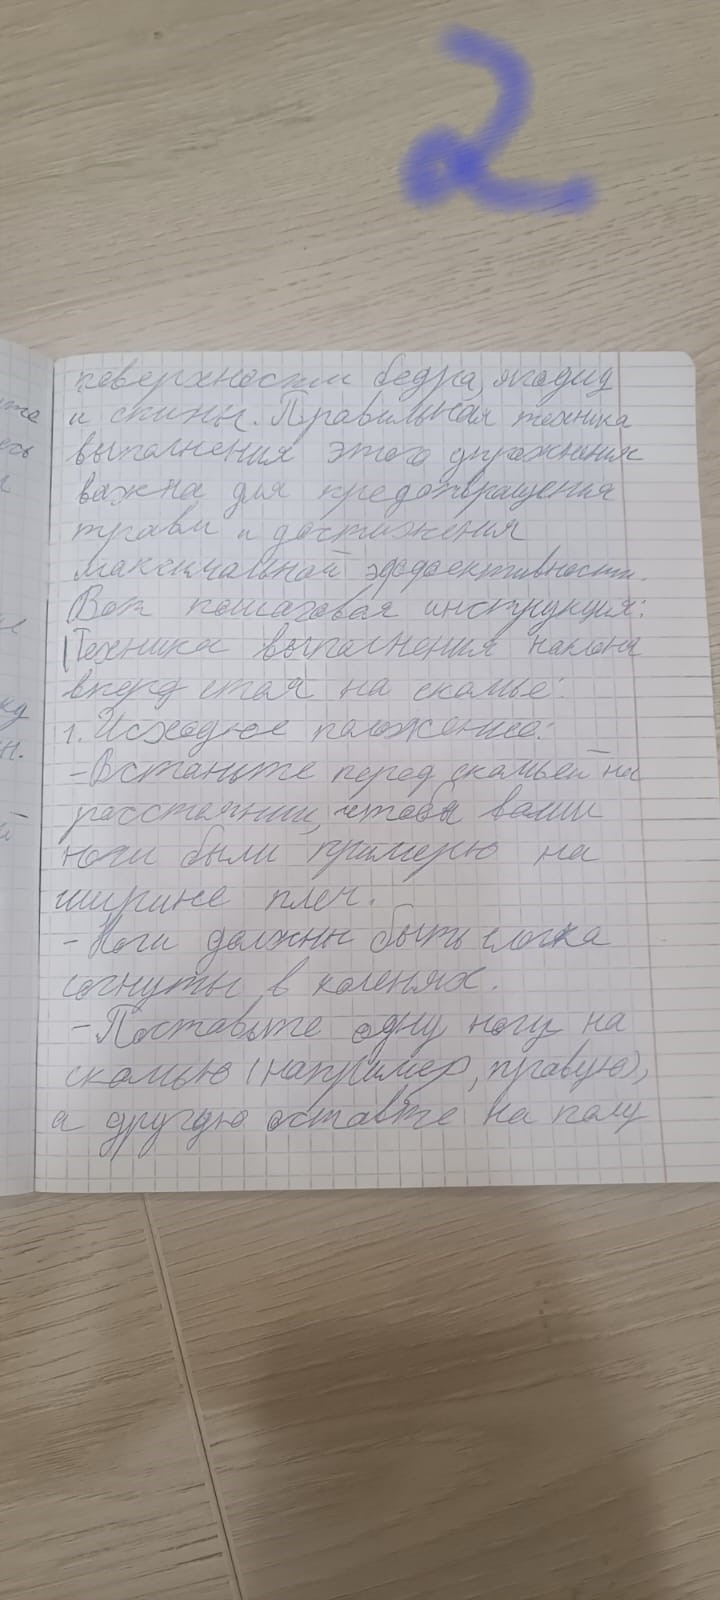 2
поверхности бедра, ягодиц
и спины. Правильная техника
выполнения этого упражнения
важна для предотвращения
травм и достижения
максимальной эффективности.
Вот пошаговая инструкция:
Техника выполнения наклона
вперед стоя на скамье:
1. Исходное положение:
- Встаньте перед скамьей на
расстоянии, чтобы ваши
ноги были примерно на
ширине плеч.
- Ноги должны быть слегка
согнуты в коленях.
- Поставьте одну ногу на
скамью (например, правую),
а другую оставьте на полу